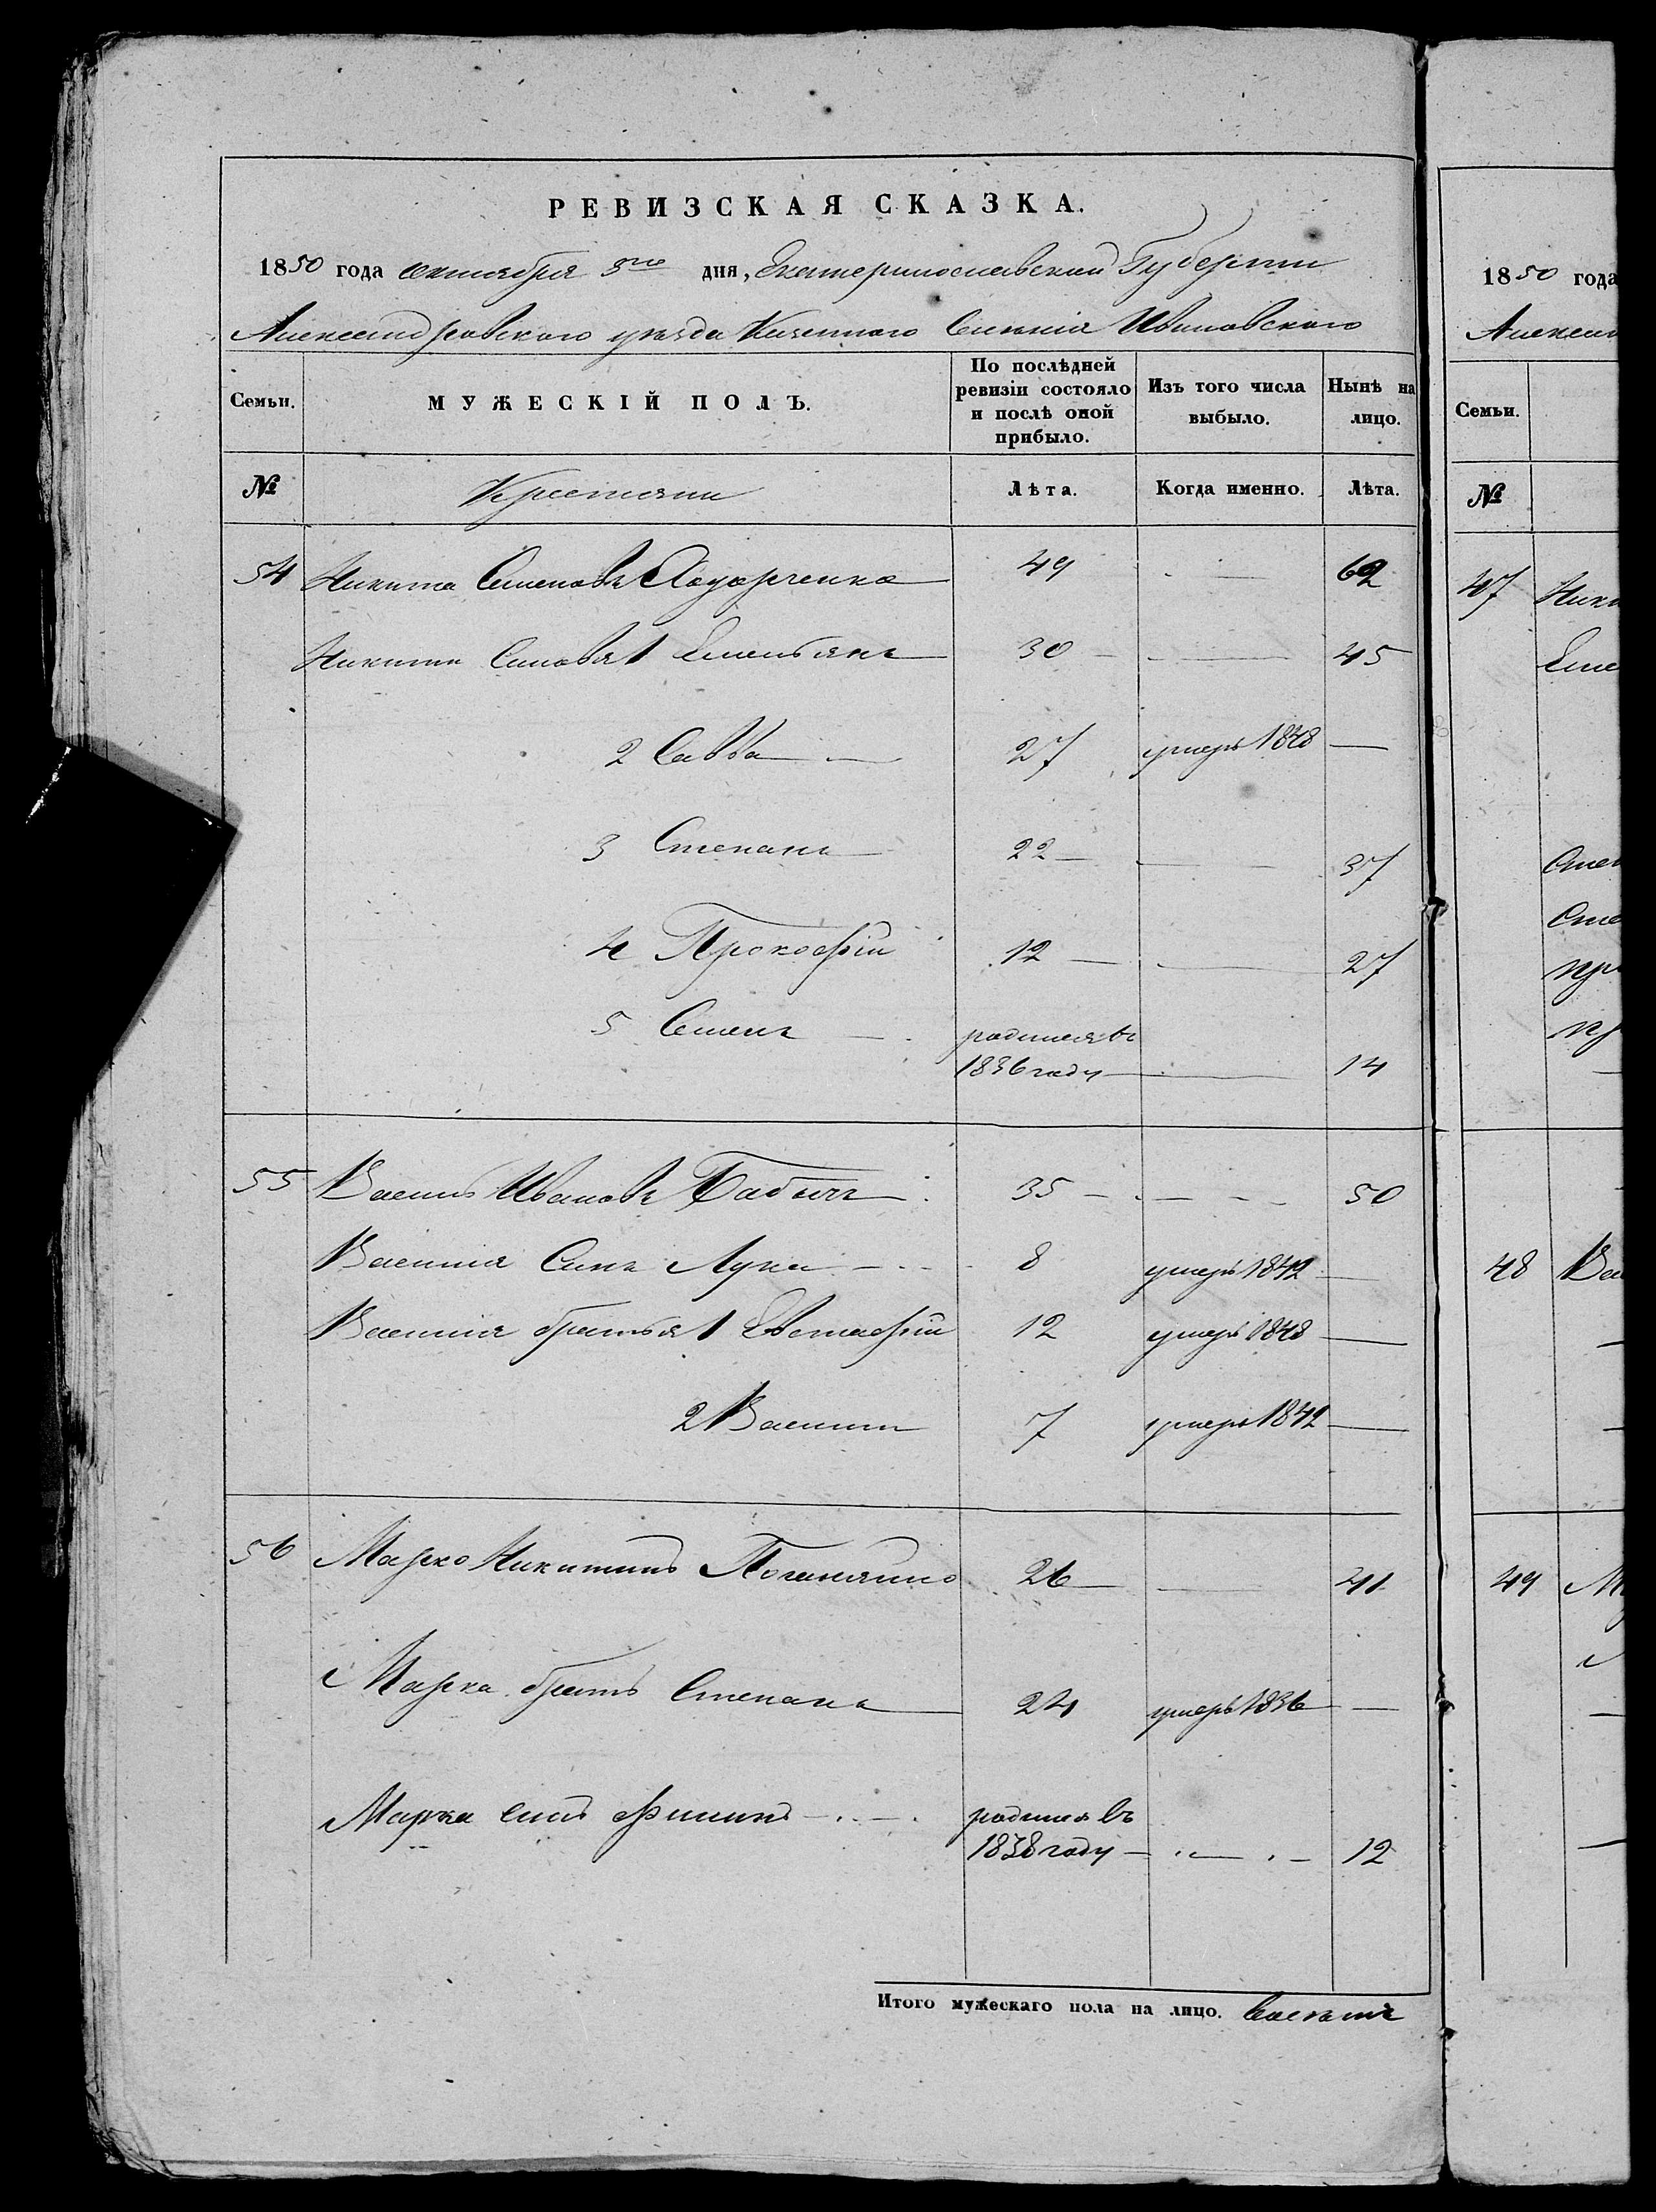 РЕВИЗСКАЯ СКАЗКА.
1850 года октября 3го дня, Екатеринославской Губернии
Александровского уезда Казенного Селенія Ивановского
Семьи. МУЖЕСКІЙ ПОЛЪ. По послѣдней ревизіи состояло и послѣ оной прибыло. Изъ того числа выбыло. Нынѣ на лицо.
№ Крестьяни Лѣта. Когда именно. Лѣта.
54 Никита Семеновъ 49 — 62
Никити Сыновья 1 Емельянъ 30 — 45
2 Савва 27 умеръ 1848 —
3 Степанъ 22 — 37
4 Прокофій 12 — 27
5 Семенъ — родился въ
1836 году — 14
55 Василь Ивановъ Бабичъ 35 — 50
Василія Сынъ Лука 8 умеръ 1842 —
Василія братья 1 Евстафій 12 умеръ 1848 —
2 Василій 7 умеръ 1842 —
56 Марко Никитинъ 26 — 41
Марка братъ Степанъ 24 умеръ 1836 —
Марка сынъ родился въ
1838 году — 12
Итого мужескаго пола на лицо. восемь
1850 года
Семьи.
№
47
48
49